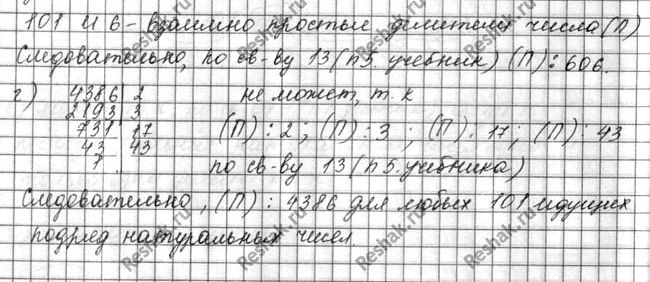 101 и 6 - взаимно простые делители числа (П)
Следовательно, по св-ву 13 (п 5. учебник) (П) ⋮ 606.
г) 4386 2 не может, т. к
2193 3
731 17 (П) ⋮ 2 ; (П) ⋮ 3 ; (П) ⋮ 17 ; (П) ⋮ 43
43 43
1 по св-ву 13 (п 5. учебника)
Следовательно, (П) ⋮ 4386 для любых 101 идущих
подряд натуральных чисел.
Reshak.ru